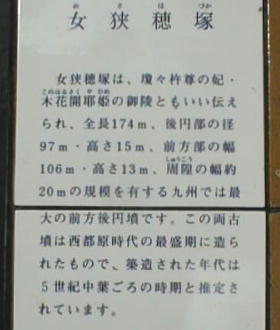 女狭穂塚
女狭穂塚は、瓊々杵尊の妃・
木花開耶姫の御陵ともいい伝え
られ、全長174m、後円部の径
97m・高さ15m、前方部の幅
106m・高さ13m、周隍の幅約
20mの規模を有する九州では最
大の前方後円墳です。この両古
墳は西都原時代の最盛期に造ら
れたもので、築造された年代は
5世紀中葉ごろの時期と推定さ
れています。